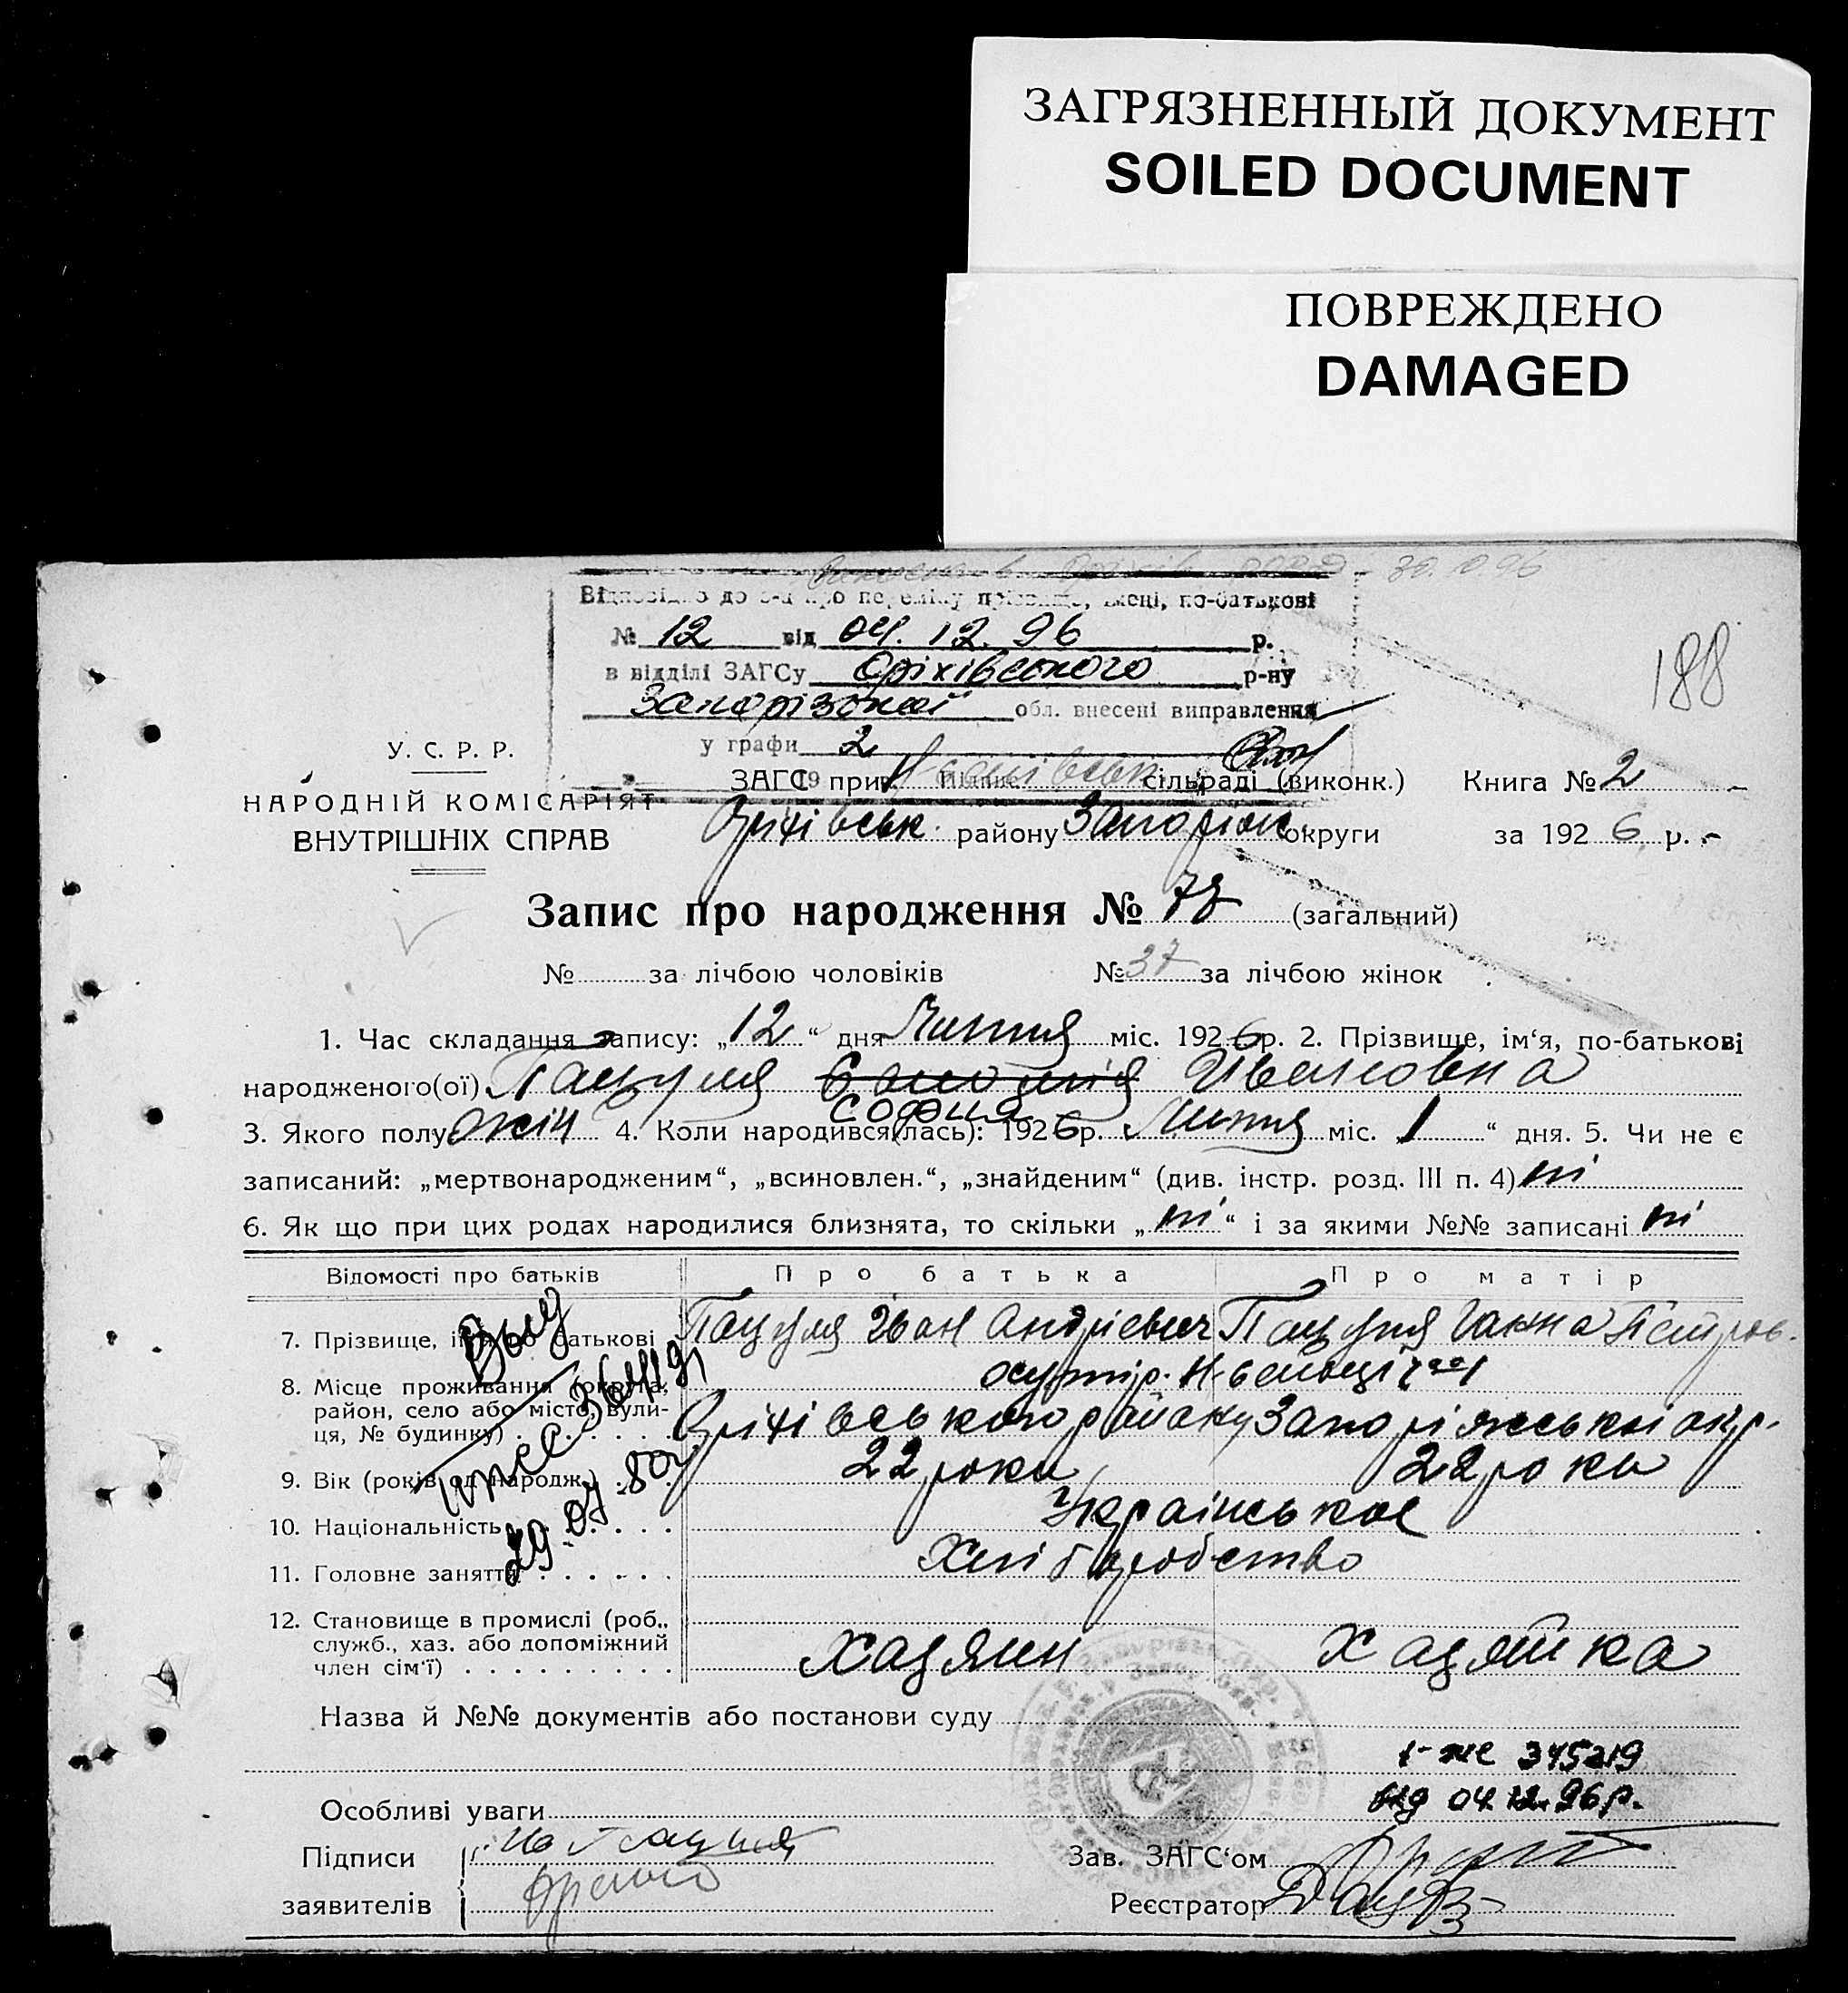 ЗАГРЯЗНЕННЫЙ ДОКУМЕНТ
SOILED DOCUMENT
ПОВРЕЖДЕНО
DAMAGED
30.10.96
Відповідно до з-а про переміну прізвище, імені, по-батькові
№ 12 від 04.12.96 р.
в відділі ЗАГСу Оріхівського р-ну
Запорізької обл. внесені виправлення
188
у графи 2
У. С. Р. Р.
НАРОДНІЙ КОМІСАРІЯТ
ВНУТРІШНІХ СПРАВ
ЗАГС при сільраді (виконк.) Книга № 2
Оріхівськ. району Запоріж. округи за 1926 р.
Запис про народження № 78 (загальний)
№ за лічбою чоловіків № 37 за лічбою жінок
1. Час складання запису: „12“ дня Липня міс. 1926 р. 2. Прізвище, ім‘я, по-батькові
народженого(ої) Пацуля Івановна
Софія
3. Якого полу жін 4. Коли народився(лась): 1926 р. Липня міс. „1“ дня. 5. Чи не є
записаний: „мертвонародженим“, „всиновлен.“, „знайденим“ (див. інстр. розд. III п. 4) ні
6. Як що при цих родах народилися близнята, то скільки „ні“ і за якими №№ записані ні
Відомості про батьків Про батька Про матір
7. Прізвище, ім‘я по батькові Пацуля Іван Андрієвич Пацуля Ганна Петров.
8. Місце проживання (округа, район, село або місто, вули-ця, № будинку)
Оріхівського району Запоріжськ окр.
9. Вік (років од народж.) 22 роки 22 роки
10. Національність Українськає
11. Головне заняття Хліборобство
12. Становище в промислі (роб., служб., хаз. або допоміжний член сім‘ї) хазяин хазяйка
29.07.80
Назва й №№ документів або постанови суду
І-ЖС 345219
від 04.12.96 р.
Особливі уваги
Підписи
заявителів
Зав. ЗАГС‘ом
Реєстратор